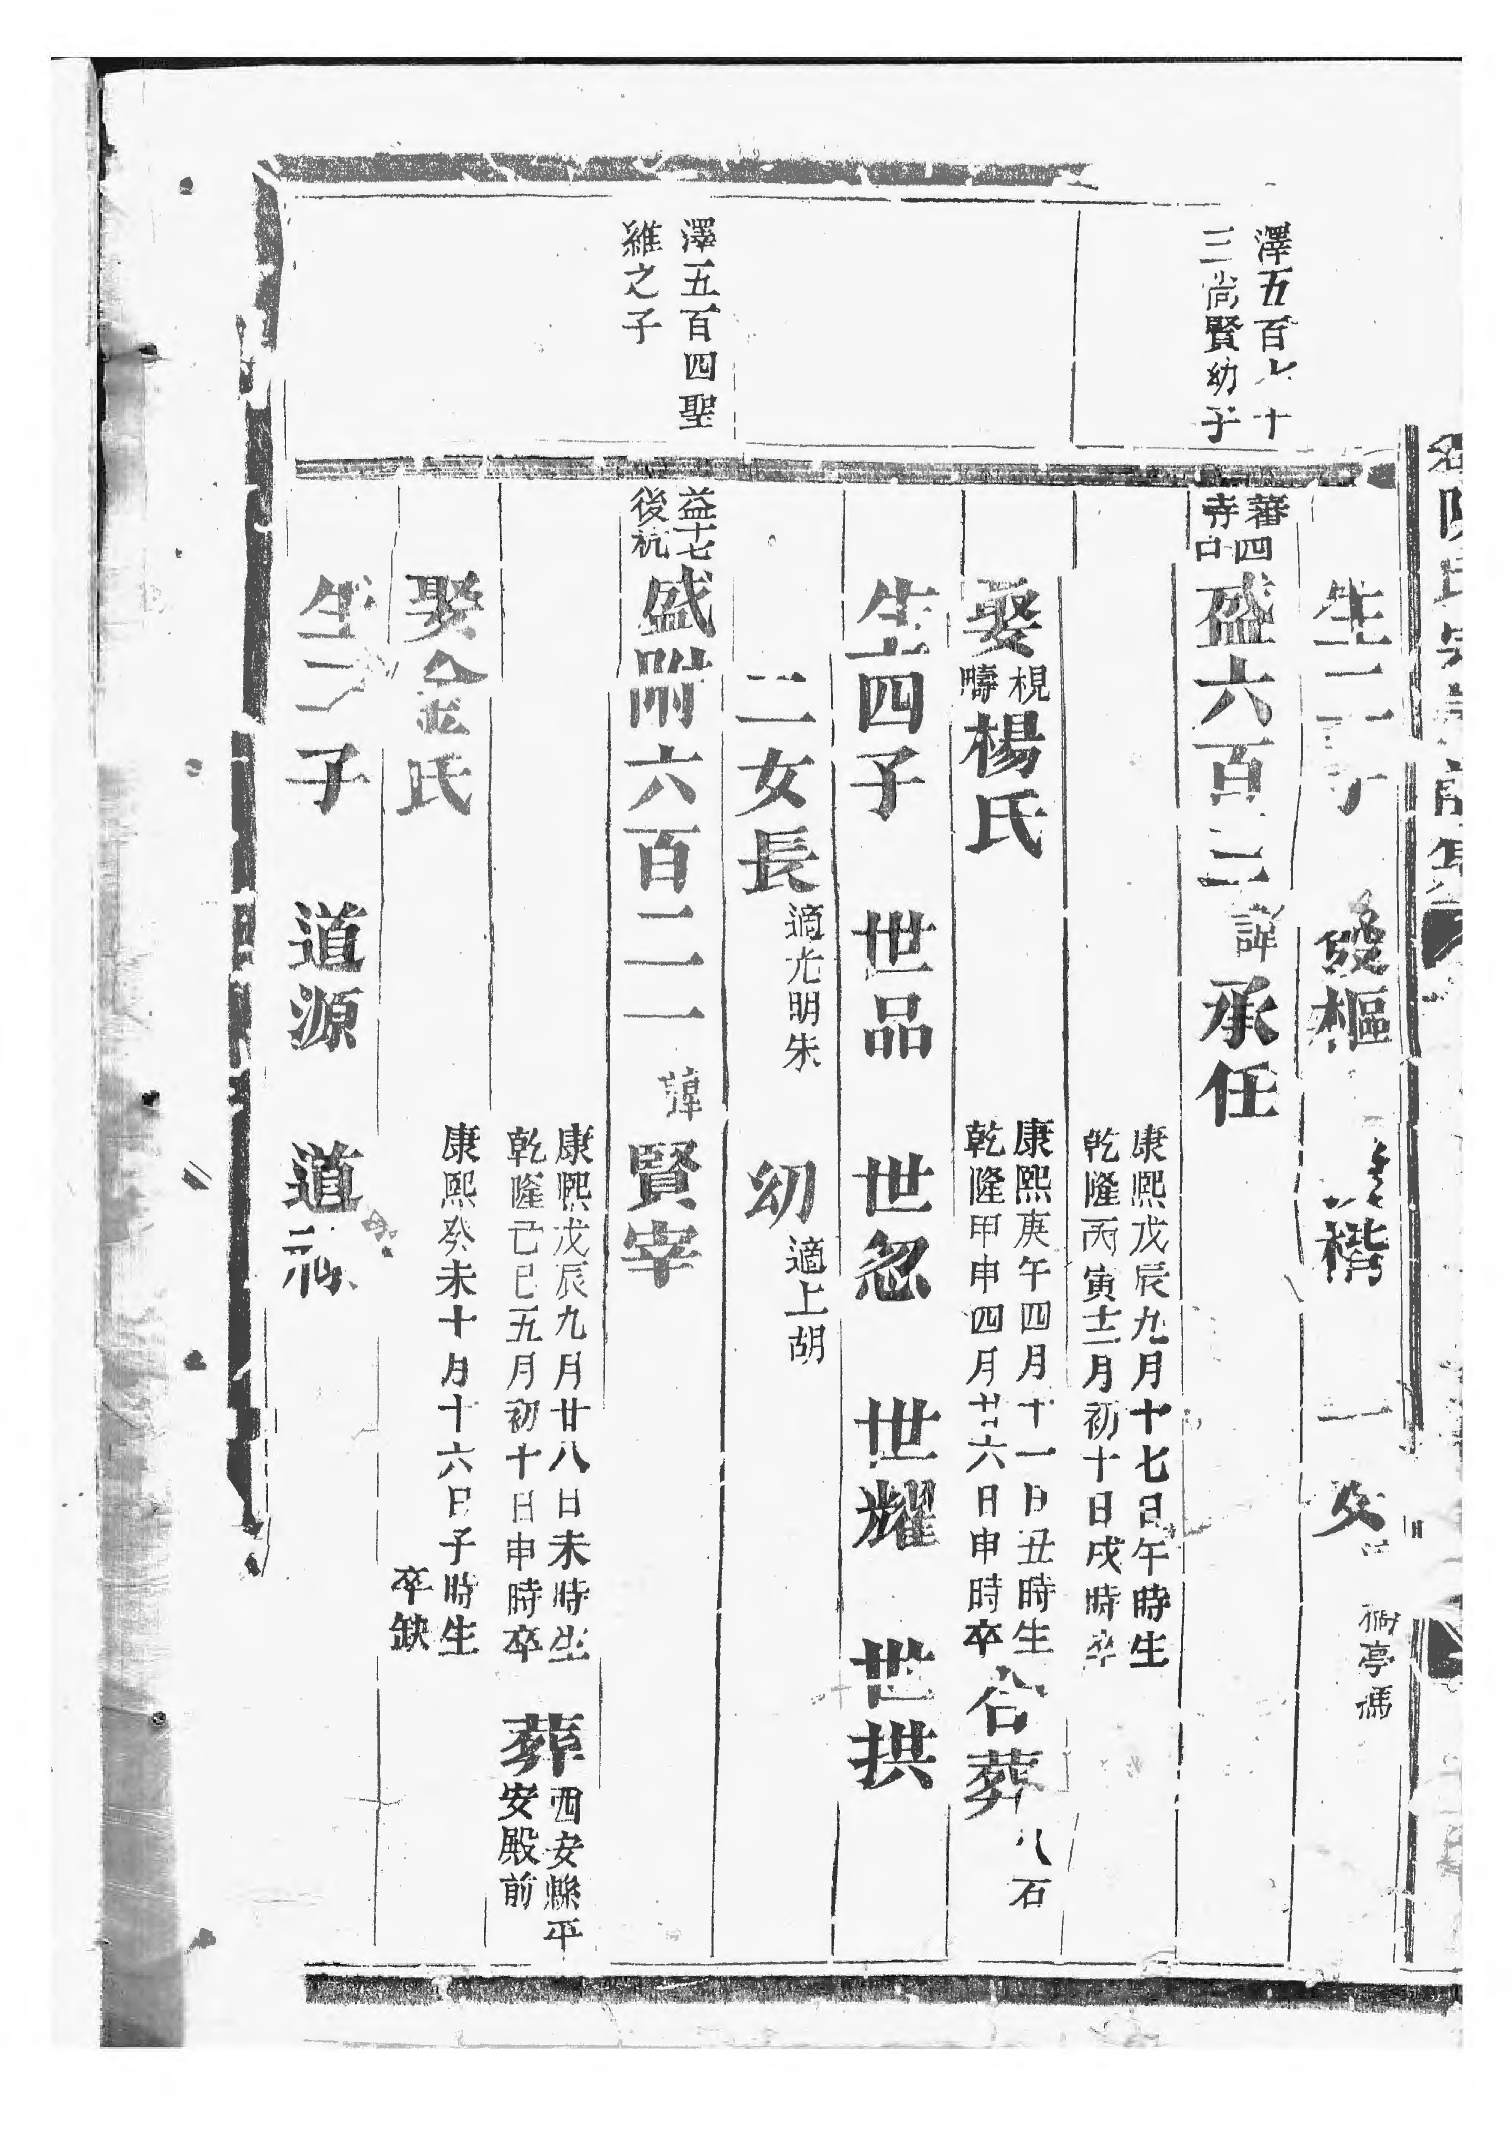 生二子 發樞 楷 一女
衕亭馮
澤五百七十
三尚賢幼子
蕃四
寺口
盛六百二 諱 承任
康熙戊辰九月十七日午時生
乾隆丙寅十二月初十日戌時卒
娶 梘疇 楊氏
康熙庚午四月十一日丑時生
乾隆甲申四月廿六日申時卒
合葬 八石
生四子 世品 世忽 世耀 世拱
二女長 適尤明朱 幼 適上胡
澤五百四聖
維之子
益十七
後杭
盛附六百二一 諱 賢宰
康熙戊辰九月廿八日未時生
乾隆己巳五月初十日申時卒
葬 西安縣平
安殿前
娶金氏
康熙癸未十月十六日子時生
卒缺
生二子 道源 道